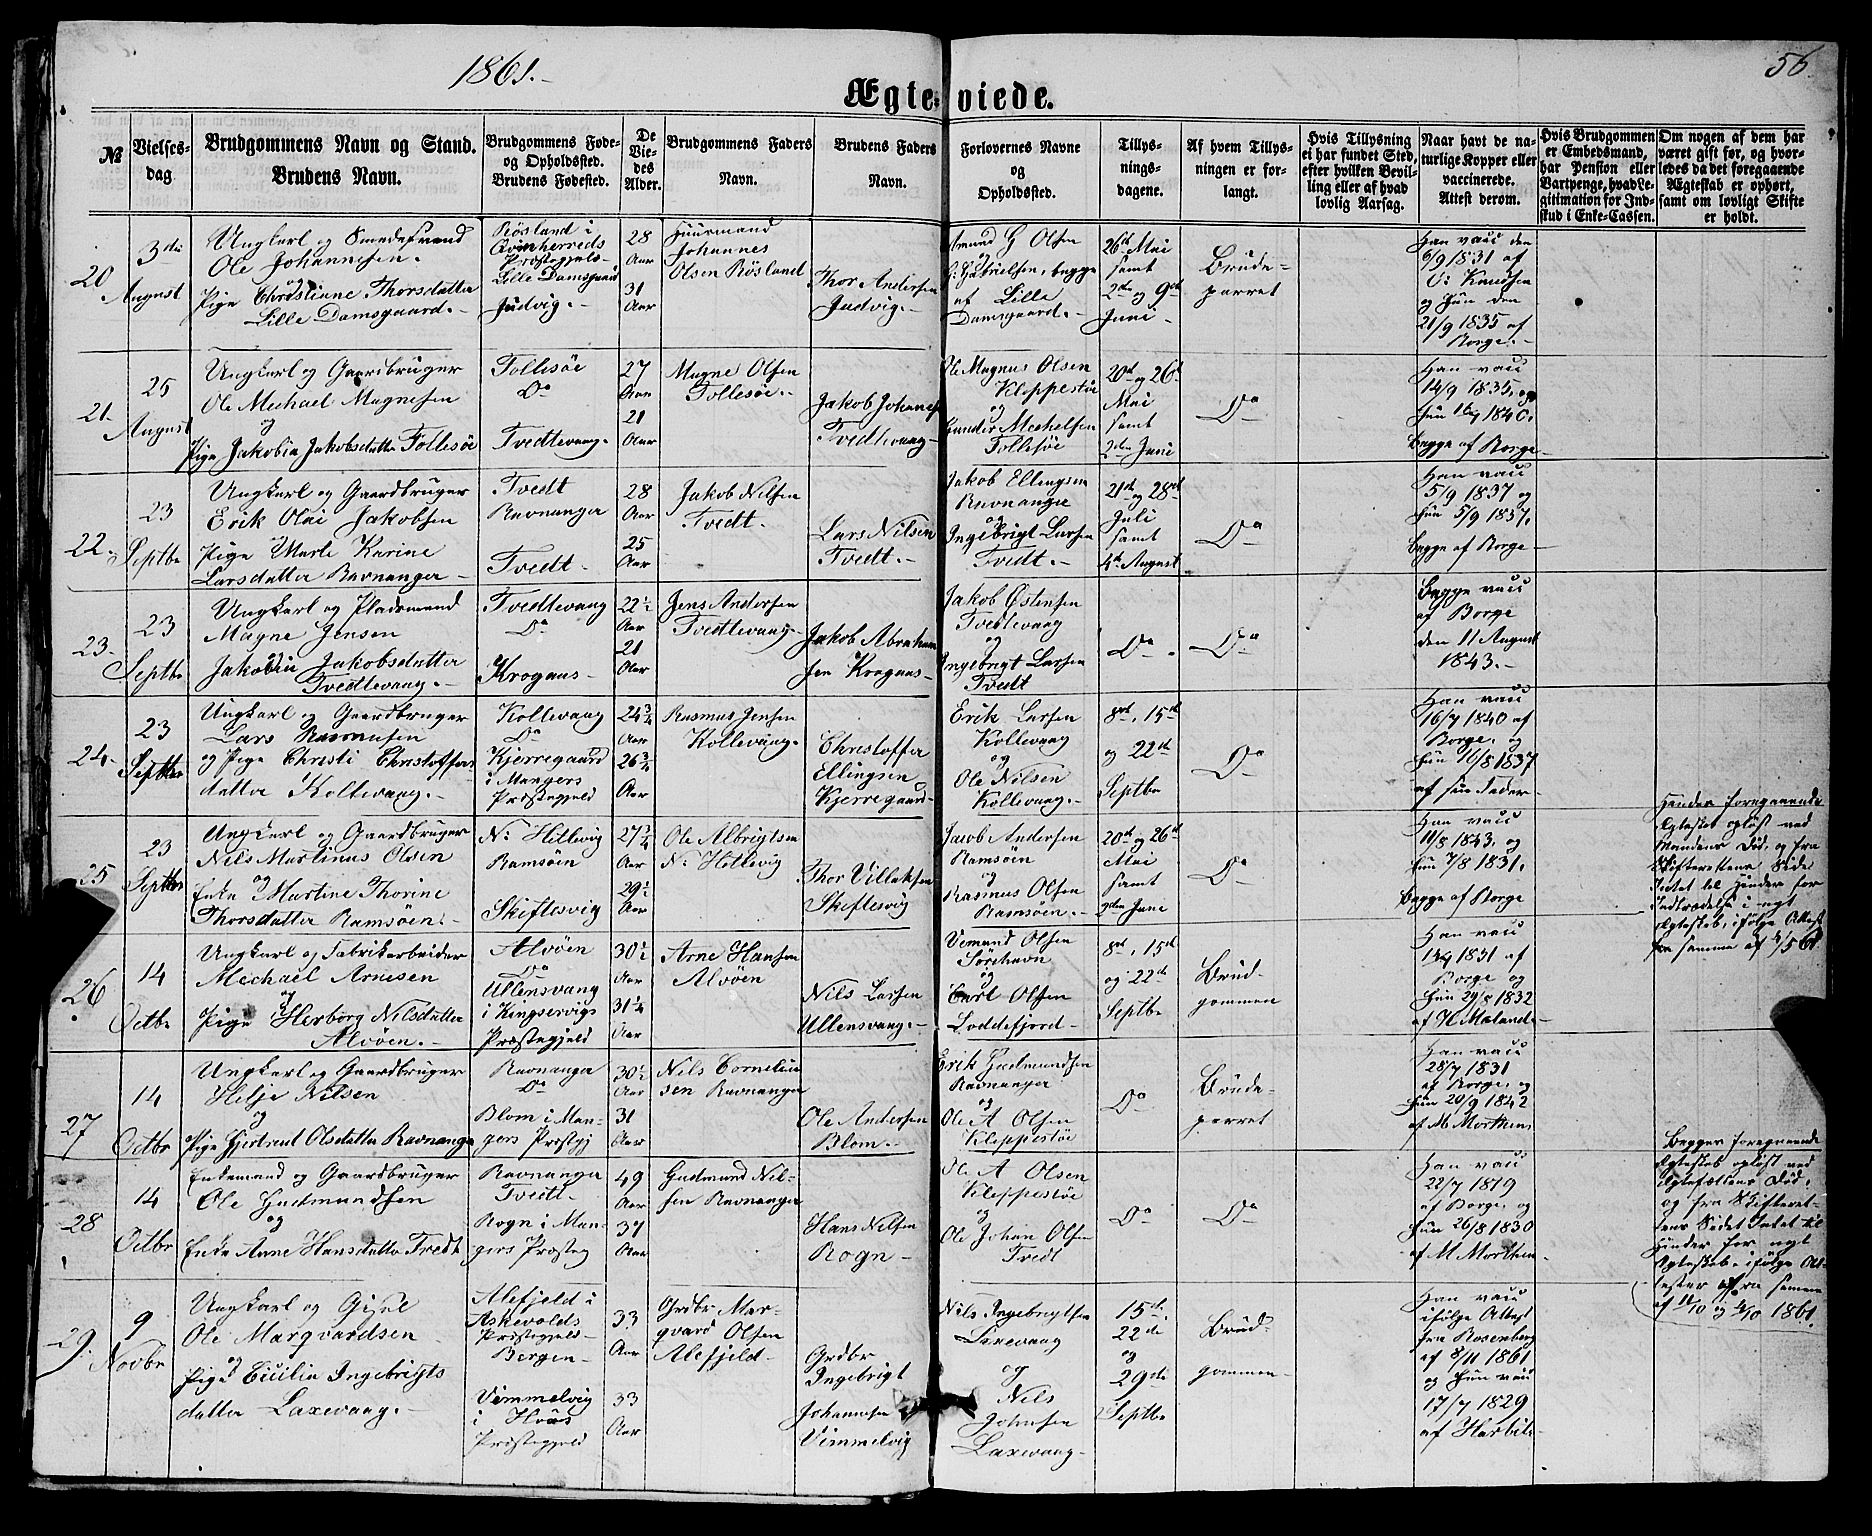 1861.-
56.
Ægteviede.
№
Vielses-
dag.
Brudgommens Navn og Stand.
Brudens Navn.
Brudgommens Føde-
og Opholdssted.
Brudens Fødested.
De
Vie-
des
Alder.
Brudgommens Faders
Navn.
Brudens Faders
Navn.
Forlovernes Navne
og
Opholdssted.
Tillys-
nings-
dagene.
Af hvem Tillys-
ningen er for-
langt.
Hvis Tillysning
ei har fundet Sted,
efter hvilken Bevil-
ling eller af hvad
lovlig Aarsag.
Naar havt de na-
turlige Kopper eller
vaccinerede.
Attest derom.
Hvis Brudgommen
er Embedsmand,
har Pension eller
Vartpenge, hvad Le-
gitimation for Ind-
skud i Enke-Cassen.
Om nogen af dem har
været gift før, og hvor-
ledes da det foregaaende
Ægteskab er ophørt,
samt om lovligt Skifte
er holdt.
20
3die
August
Ungkarl og
Ole Johannesen.
og
Pige Christiane Thorsdatter
Lille Damsgaard.-
Røsland i
Qvinherreds
Præstegjeld-
Lille Damsgaard
Judvig.-
28
Aar
31
Aar
Huusmand
Johannes
Olsen Røsland
Thor Andersen
Judvig.-
Amund G Olsen
og
G: Gabrielsen, begge
af Lille
Damsgaard.-
26de Mai
samt
2den og 9de
Juni-
Brude-
parret
Han vacc den
6/9 1831 af
C: Knudsen
og Hun den
21/9 1835 af
Borge.-
21.
25
August
Ungkarl og Gaardbruger
Ole Mechael Magnesen
og
Pige Jakobia Jakobsdatter Follesøe
Follesøe
Do
Tvedtevaag.
27
Aar
21
Aar
Magne Olsen
Follesøe.
Jakob Johannes
Tvedtevaag-
Ole Magnus Olsen
Kleppestøe
og
Gunder Mechelsen
Follesøe
20de og 26de
Mai
samt
2den Juni
Do
Han vacc
14/9 1835, og
Hun 1840.
begge af Borge-
22.
23
Septbr
Ungkarl og Gaardbruger
Erik Olai Jakobsen
Pige Marte Karine
Larsdatter Ravnanger-
Tvedt
Ravnanger
Tvedt-
28
Aar
25
Aar
Jakob Nilsen
Tvedt.
Lars Nilsen
Tvedt.-
Jakob Ellingsen
Ravnanger
og
Ingebrigt Larsen
Tvedt.-
21de og 28de
Juli
samt
4de August
Do
Han vacc
5/9 1837 og
Hun 5/9 1837.
begge af Borge-
23.
23
Septbr
Ungkarl og Pladsmand
Magne Jensen
Jakobia Jakobsdatter
Tvedtevaag.-
Tvedtevaag
Do
Krogaas-
22½
Aar
21
Aar
Jens Andersen
Tvedtevaag-
Jakob Abraham
sen Krogaas-
Jakob Østensen
Tvedtevaag
og
Ingebrigt Larsen
Tvedt
Do
Do
Begge vacc
af Borge
den 11 August
1843.-
24.
23
Septbr
Ungkarl og Gaardbruger
Lars Rasmusen
og Pige Christi Christoffers
datter Kollevaag.-
Kollevaag
Do
Kjerregaard
i Mangers
Præstegjeld
24¾
Aar
26¾
Aar
Rasmus Jensen
Kollevaag.
Christoffer
Ellingsen
Kjerregaard-
Erik Larsen
Kollevaag
og
Ole Nilsen
Kollevaag.-
8de, 15de
og 22de
Septbr
Do
Han vacc
16/7 1840 af
Borge, og
Hun 16/8 1837
af sin Fader-
25
23
Septbr
Ungkarl og Gaardbruger
Nils Martinus Olsen
og
Enke Martine Thorine
Thorsdatter Ramsøen.-
N: Hetlevig
Ramsøen
Skiftesvig
27¾
Aar
29½
Aar
Ole Albrigtsen
N: Hetlevig
Thor Villaksen
Skiftesvig
Jacob Andersen
Ramsøen
og
Rasmus Olsen
Ramsøen.-
20de og 26de
Mai
samt
2den Juni
Do
Han vacc
11/8 1843, og
Hun 7/8 1831.
Begge af Borge
Hendes foregaaende
Ægteskab opløst ved
Mandens Død, og fra
Skifterettens Side
Intet til Hinder for
Indtrædelse i nyt
Ægteskab, ifølge Attest
fra samme af 4/5 61.
26
14
Octbr
Ungkarl og Fabrikarbeider
Mechael Arnesen
og
Pige Herborg Nilsdatter
Alvøen.-
Alvøen
Do
Ullensvang
i Kingservigs
Præstegjeld
30½
Aar
31¼
Aar
Arne Hansen
Alvøen
Nils Larsen
Ullensvang.-
Vemund Olsen
Sørehavn
og
Carl Olsen
Loddefjord-
8de, 15de
og 22de
Septbr
Brud-
gommen
Han vacc
1831 af
Borge og
Hun 29/8 1832
af H. Maland-
27
14
Octbr
Ungkarl og Gaardbruger
Helje Nilsen
og
Pige Gjertrud Olsdatter Ravnanger
Ravnanger
Do
Blom i Man-
gers Præstgj
30½
Aar
31
Aar
Nils Corneliu
sen Ravnanger
Ole Andersen
Blom.-
Erik Gudmundsen
Ravnanger
og
Ole A Olsen
Kleppestøe
Do
Brude-
parret
Han vacc
28/7 1831
af Borge, og
Hun 20/9 1842
af M. Morthens
28
14
Octbr
Enkemand og Gaardbruger
Ole Gudmundsen
og
Enke Anne Hansdatter Tvedt
Ravnanger
Tvedt-
Rogn i Man-
gers Præsteg
49
Aar
37
Aar
Gudmund Nil-
sen Ravnanger
Hans Nilsen
Rogn-
Ole A Olsen
Kleppestøe
og
Ole Johan Olsen
Tvedt
Do
Do
Han vacc
22/7 1819
af Borge, og
Hun 26/8 1830
af M. Morthens
Begges foregaaende
Ægteskab opløst ved
Ægtefællens Død,
og fra Skifteret-
tens Side Intet til
Hinder for nyt
Ægteskab, ifølge At-
tester fra samme
af 12/10 og 4/10 1861.
29.
9
Novbr
Ungkarl og
Ole Margvardsen
og
Pige Cicilia Ingebrigts
datter Laxevaag.-
Alefjeld i
Askevolds
Præstegjeld-
Bergen-
Vemmelvig
i Høvs
Præstegjeld
33
Aar
33
Aar
Grdbr Mar-
gvard Olsen
Alefjeld-
Grdbr
Ingebrigt
Johannesen
Vemmelvig
Nils Ingebrigtsen
Laxevaag
og
Nils
Johnsen
Laxevaag-
15de
22de
og
29de
Septbr
Brud-
gommen-
Han vacc
ifølge Attest
fra Rosenberg
af 8/11 1861
og Hun vacc
17/7 1829
af